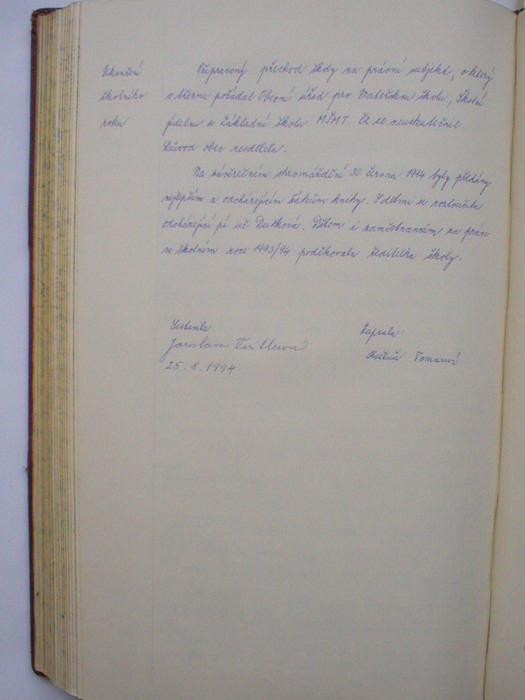 Ukončení
školního
roku
Připravený přechod školy na právní subjekt, o který
v březnu požádal Obecní úřad pro Mateřskou školu, Školní
jídelnu a Základní školu MŠMT ČR se neuskutečnil.
Důvod obec nesdělila.
Na závěrečném shromáždění 30. června 1994 byly předány
nejlepším a odcházejícím žákům knihy. S dětmi se rozloučila
odcházející pí uč. Dutková. Dětem i zaměstnancům za práci
ve školním roce 1993/94 poděkovala ředitelka školy.
Sestavila:
Jaroslava
25. 8. 1994
Zapsala:
Tomanová